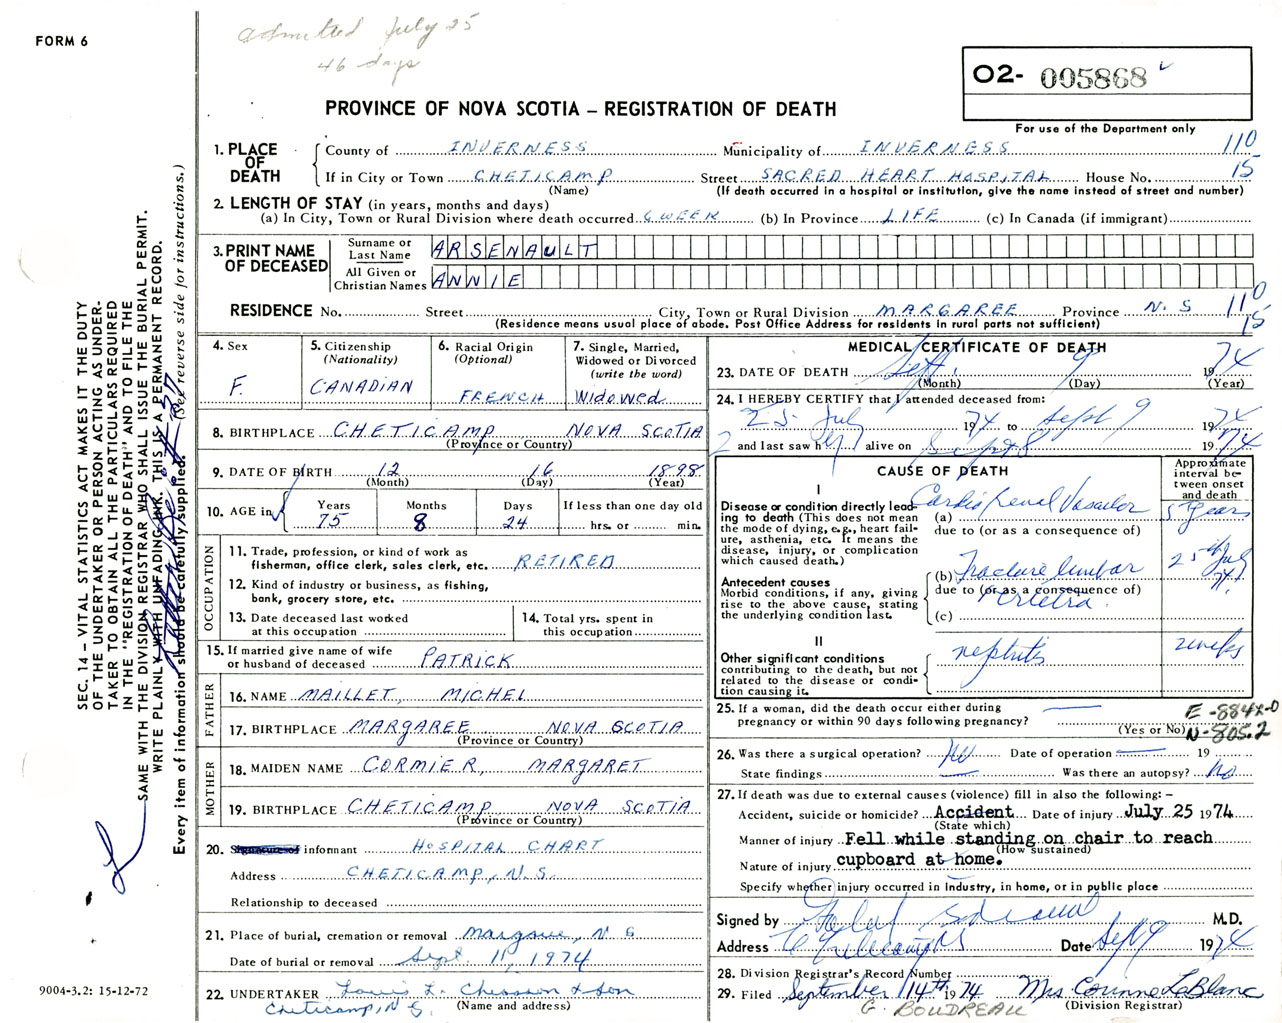 admitted July 25
46 days
FORM 6
O2- 005868
For use of the Department only
PROVINCE OF NOVA SCOTIA – REGISTRATION OF DEATH
1. PLACE OF DEATH
County of INVERNESS Municipality of INVERNESS 110
If in City or Town CHETICAMP Street SACRED HEART HOSPITAL House No. 15
(Name) (If death occurred in a hospital or institution, give the name instead of street and number)
2. LENGTH OF STAY (in years, months and days)
(a) In City, Town or Rural Division where death occurred 6 WEEK (b) In Province LIFE (c) In Canada (if immigrant)
3. PRINT NAME OF DECEASED
Surname or Last Name ARSENAULT
All Given or Christian Names ANNIE
RESIDENCE No. Street City, Town or Rural Division MARGAREE Province N.S 110
(Residence means usual place of abode. Post Office Address for residents in rural parts not sufficient) 15
4. Sex F.
5. Citizenship (Nationality) CANADIAN
6. Racial Origin (Optional) FRENCH
7. Single, Married, Widowed or Divorced (write the word) WIDOWED
8. BIRTHPLACE CHETICAMP NOVA SCOTIA
(Province or Country)
9. DATE OF BIRTH 12 16 1898
(Month) (Day) (Year)
10. AGE in Years 75 Months 8 Days 24 If less than one day old hrs. or min.
OCCUPATION
11. Trade, profession, or kind of work as fisherman, office clerk, sales clerk, etc. RETIRED
12. Kind of industry or business, as fishing, bank, grocery store, etc.
13. Date deceased last worked at this occupation
14. Total yrs. spent in this occupation
15. If married give name of wife or husband of deceased PATRICK
FATHER
16. NAME MAILLET, MICHEL
17. BIRTHPLACE MARGAREE NOVA SCOTIA
(Province or Country)
MOTHER
18. MAIDEN NAME CORMIER, MARGARET
19. BIRTHPLACE CHETICAMP NOVA SCOTIA
(Province or Country)
20. Signature of informant HOSPITAL CHART
Address CHETICAMP, N.S.
Relationship to deceased
21. Place of burial, cremation or removal Margaree, N S
Date of burial or removal Sept. 11, 1974
22. UNDERTAKER Louis L. Chiasson & Son
Cheticamp, N S. (Name and address)
MEDICAL CERTIFICATE OF DEATH
23. DATE OF DEATH Sept. 9 1974
(Month) (Day) (Year)
24. I HEREBY CERTIFY that I attended deceased from:
25 July 1974 to Sept 9 1974
and last saw h alive on Sept 8 1974
CAUSE OF DEATH
Approximate interval between onset and death
I
Disease or condition directly leading to death (This does not mean the mode of dying, e.g., heart failure, asthenia, etc. It means the disease, injury, or complication which caused death.)
(a) Cardio renal Vascular 5 years
due to (or as a consequence of)
Antecedent causes
Morbid conditions, if any, giving rise to the above cause, stating the underlying condition last.
(b) Fracture lumbar 25 July 74
due to (or as a consequence of)
(c)
II
Other significant conditions contributing to the death, but not related to the disease or condition causing it.
nephritis 2 weeks
25. If a woman, did the death occur either during pregnancy or within 90 days following pregnancy?
(Yes or No)
E-884X-0
N-805.2
26. Was there a surgical operation? No Date of operation 19
State findings Was there an autopsy? No
27. If death was due to external causes (violence) fill in also the following: –
Accident, suicide or homicide? Accident Date of injury July 25 1974
(State which)
Manner of injury Fell while standing on chair to reach
(How sustained)
Nature of injury cupboard at home.
Specify whether injury occurred in industry, in home, or in public place
Signed by M.D.
Address Date Sept 9 1974
28. Division Registrar's Record Number
29. Filed September 14th 1974 Mrs. Corinne LeBlanc
(Division Registrar)
G. BOUDREAU
SEC. 14 – VITAL STATISTICS ACT MAKES IT THE DUTY
OF THE UNDERTAKER OR PERSON ACTING AS UNDER-
TAKER TO OBTAIN ALL THE PARTICULARS REQUIRED
IN THE "REGISTRATION OF DEATH" AND TO FILE THE
SAME WITH THE DIVISION REGISTRAR WHO SHALL ISSUE THE BURIAL PERMIT.
WRITE PLAINLY WITH UNFADING INK. THIS IS A PERMANENT RECORD.
Every item of information should be carefully supplied. (See reverse side for instructions.)
9004-3.2: 15-12-72